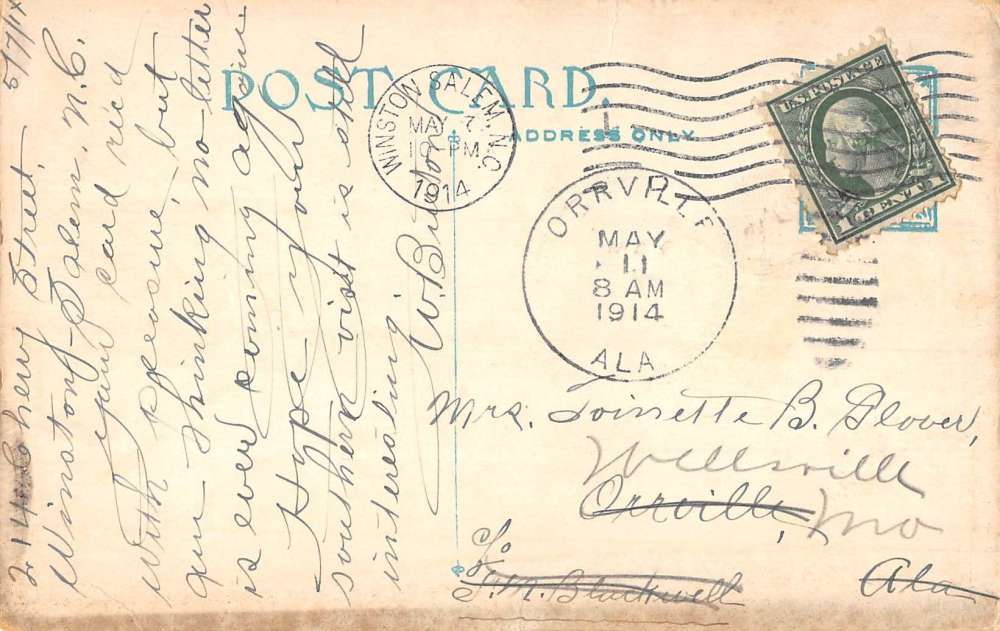 POST CARD.
ADDRESS ONLY.
WINSTON SALEM, N.C.
MAY 7
PM
1914
U.S. POSTAGE
1 CENT 1
ORRVILLE
MAY
11
8 AM
1914
ALA
5/7/14
214 Cherry Street,
Winston-Salem, N.C.
Your card rec'd
with pleasure, but
am thinking no letter
is ever coming again.
Hope your
southern visit is still
interesting.
W.B.
Mrs. Toinette B. Glover,
Wellsville
Orrville,
Mo
c/o
Blackwell
Ala